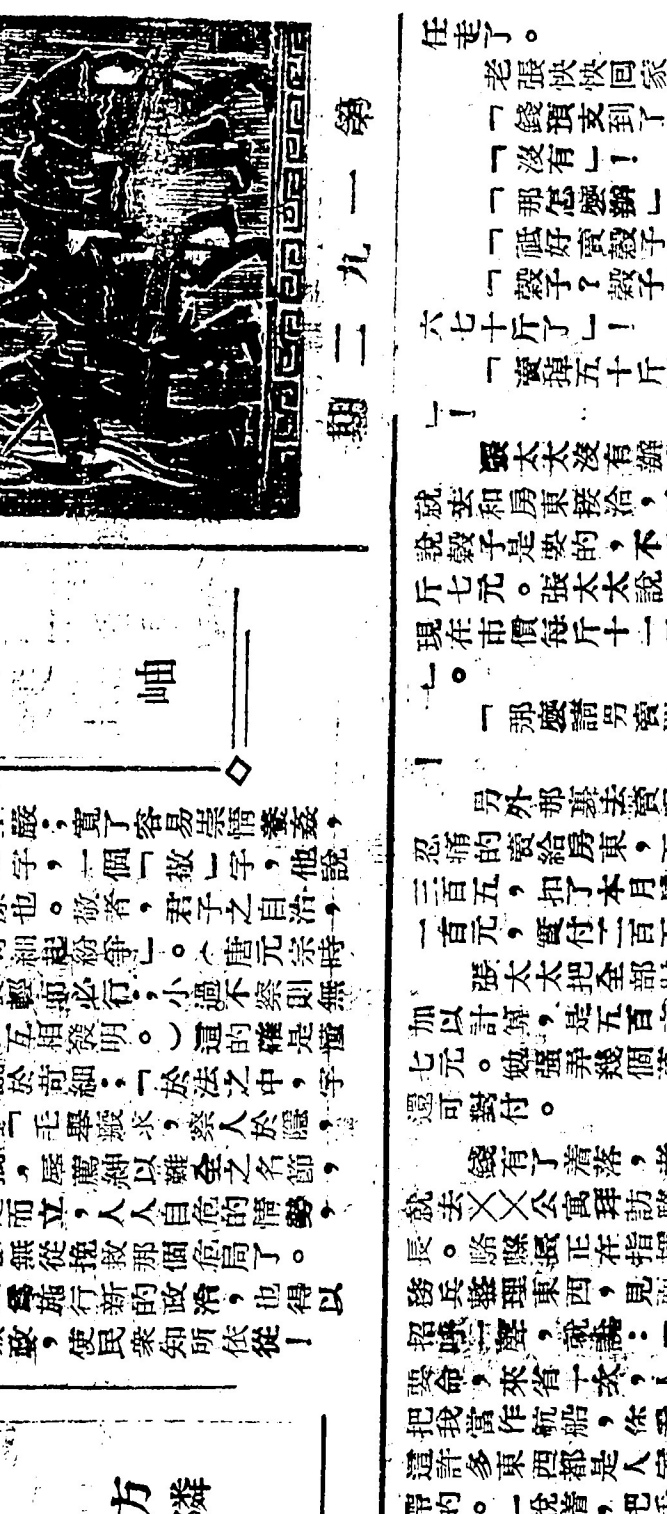 任走了。
老張怏怏回家
「錢預支到了
「沒有」！
「那怎麼辦」
「祗好賣穀子
「穀子？穀子
六七十斤了」！
「賣掉五十斤
」！
張太太沒有辦
就去和房東接洽，
說穀子是要的，不
斤七元。張太太說
現在市價每斤十一
」。
「那麼請另賣
！
另外那裏去賣
忍痛的賣給房東，
三百五，扣了本月
一百元，實付二百
張太太把全部
加以計算，是五百
七元。勉强弄幾個
還可對付。
錢有了着落，老
就去××公寓拜訪
長。駱縣長正在指揮
務兵整理東西，見
招呼一聲，就說：「
要命，來省一次，
把我當作航船，
這許多東西都是人家
帶的。一說着，把
第一九二期
岫
嚴，寬了容易崇情養姦，
字，一個「敬」字，他說
也。敬者，君子之自治，
細起紛爭」。（唐元宗時
輕卹必行，小過不察則無
互相發明。）這的確是懂
於苛細；「於法之中，字
「毛舉瘢求，察人於隱，
，辱薦紳以難全之名節，
而立，人人自危的情勢，
無從挽救那個危局了。
施行新的政治，也得以
，使民衆知所依從！
方